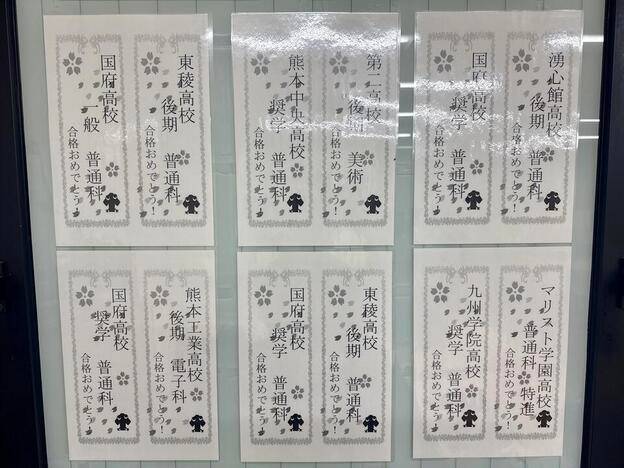 東稜高校
後期 普通科
合格おめでとう!
国府高校
一般 普通科
合格おめでとう!
第二高校
後期 美術
合格おめでとう!
熊本中央高校
奨学 普通科
合格おめでとう!
湧心館高校
後期 普通科
合格おめでとう!
国府高校
奨学 普通科
合格おめでとう!
熊本工業高校
後期 電子科
合格おめでとう!
国府高校
奨学 普通科
合格おめでとう!
東稜高校
後期 普通科
合格おめでとう!
国府高校
奨学 普通科
合格おめでとう!
マリスト学園高校
普通科 特進
合格おめでとう!
九州学院高校
奨学 普通科
合格おめでとう!